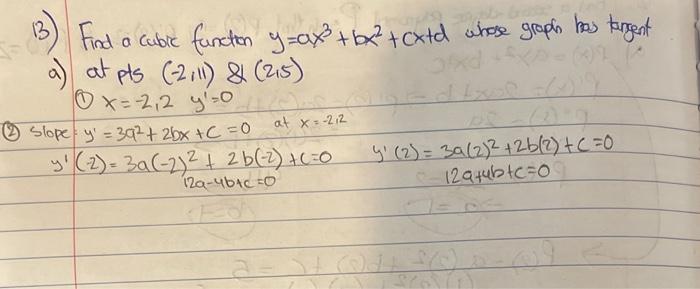 13) Find a cubic function y=ax³+bx²+cx+d whose graph has tangent
a) at pts (-2,11) & (2,5)
① x=-2,2 y'=0
② slope: y' = 3a²+2bx+C=0 at x=-2,2
y'(-2)=3a(-2)²+2b(-2)+c=0 y'(2)=3a(2)²+2b(2)+c=0
12a-4b+c=0 12a+4b+c=0